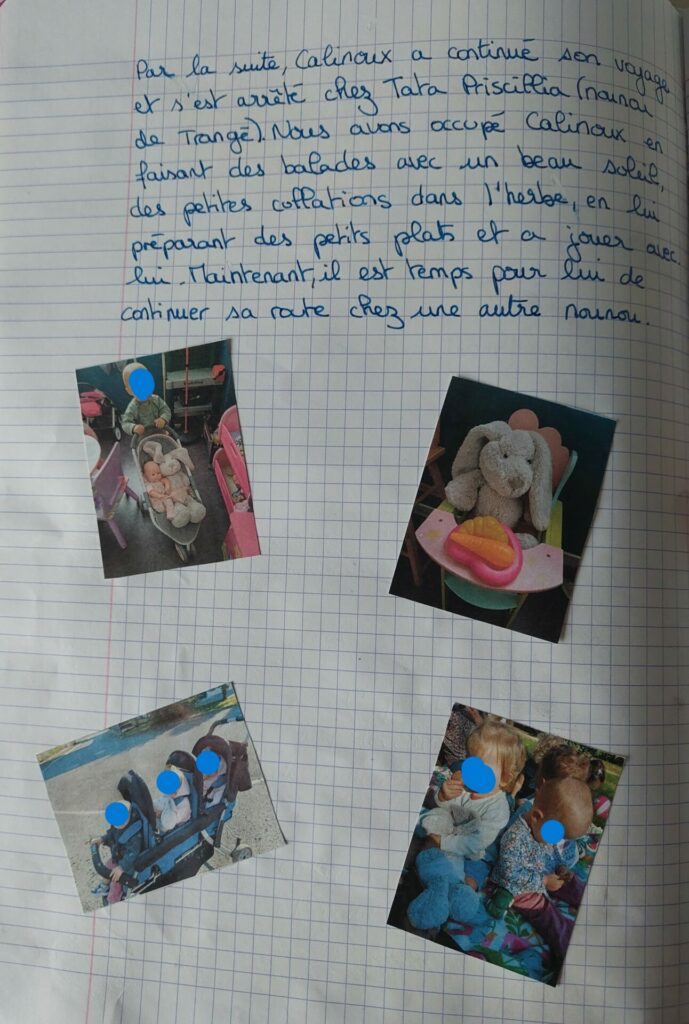 Par la suite, Calinoux a continué son voyage
et s'est arrêté chez Tata Priscillia (nounou
de Trangé). Nous avons occupé Calinoux en
faisant des balades avec un beau soleil,
des petites collations dans l'herbe, en lui
préparant des petits plats et a jouer avec
lui. Maintenant, il est temps pour lui de
continuer sa route chez une autre nounou.